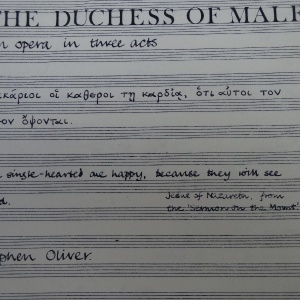 THE DUCHESS OF MALF
n opera in three acts
κάριοι οἱ καθεροι τῃ καρδίᾳ, ὅτι αὐτοι τον
ον ὄψονται.
single-hearted are happy, because they will see
d.
Jesus of Nazareth, from
the 'Sermon on the Mount'
phen Oliver.